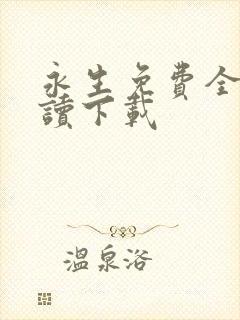 永生免費全
讀下載
溫泉浴